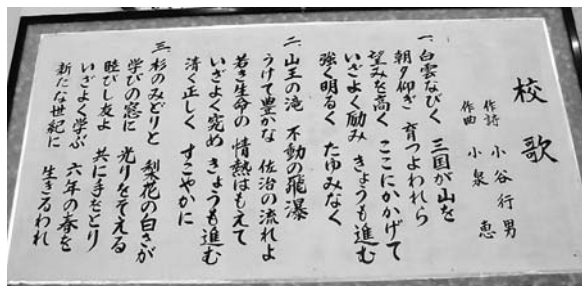 校歌
作詩 小谷行男
作曲 小泉 恵
一、白雲なびく 三国が山を
朝夕仰ぎ 育つよわれら
望みを高く ここにかかげて
いざよく励み きょうも進む
強く明るく たゆみなく
二、山王の滝 不動の飛瀑
うけて豊かな 佐治の流れよ
若き生命の 情熱はもえて
いざよく究め きょうも進む
清く正しく すこやかに
三、杉のみどりと 梨花の白さが
学びの窓に 光りをそえる
睦びし友よ 共に手をとり
いざよく学ぶ 六年の春を
新たな世紀に 生きるわれ